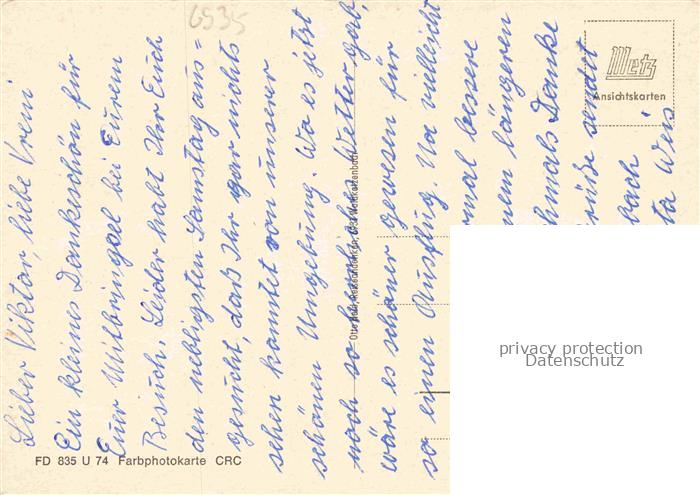 Lieber Viktor, liebe Vreni
Ein kleines Dankeschön für
Euer Mitbringsel bei Eurem
Besuch. Leider habt Ihr Euch
den nebligsten Samstag aus=
gesucht, daß Ihr gar nichts
sehen konntet von unserer
schönen Umgebung. Wo es jetzt
noch so herrliches Wetter gab,
wäre es schöner gewesen für
so einen Ausflug. Na vielleicht
mal bessere
nen längeren
chmals Danke
rüße sendet
bach
ta Weis
6535
Metz
Ansichtskarten
FD 835 U 74 Farbphotokarte CRC
privacy protection
Datenschutz